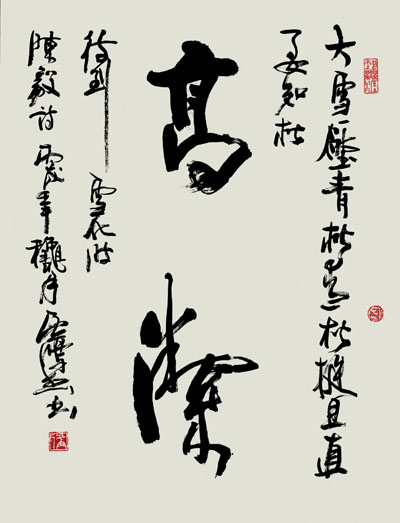 大雪壓青松青松挺且直
要知松
高
潔
待到雪化时
陳毅诗丙戌年穐月